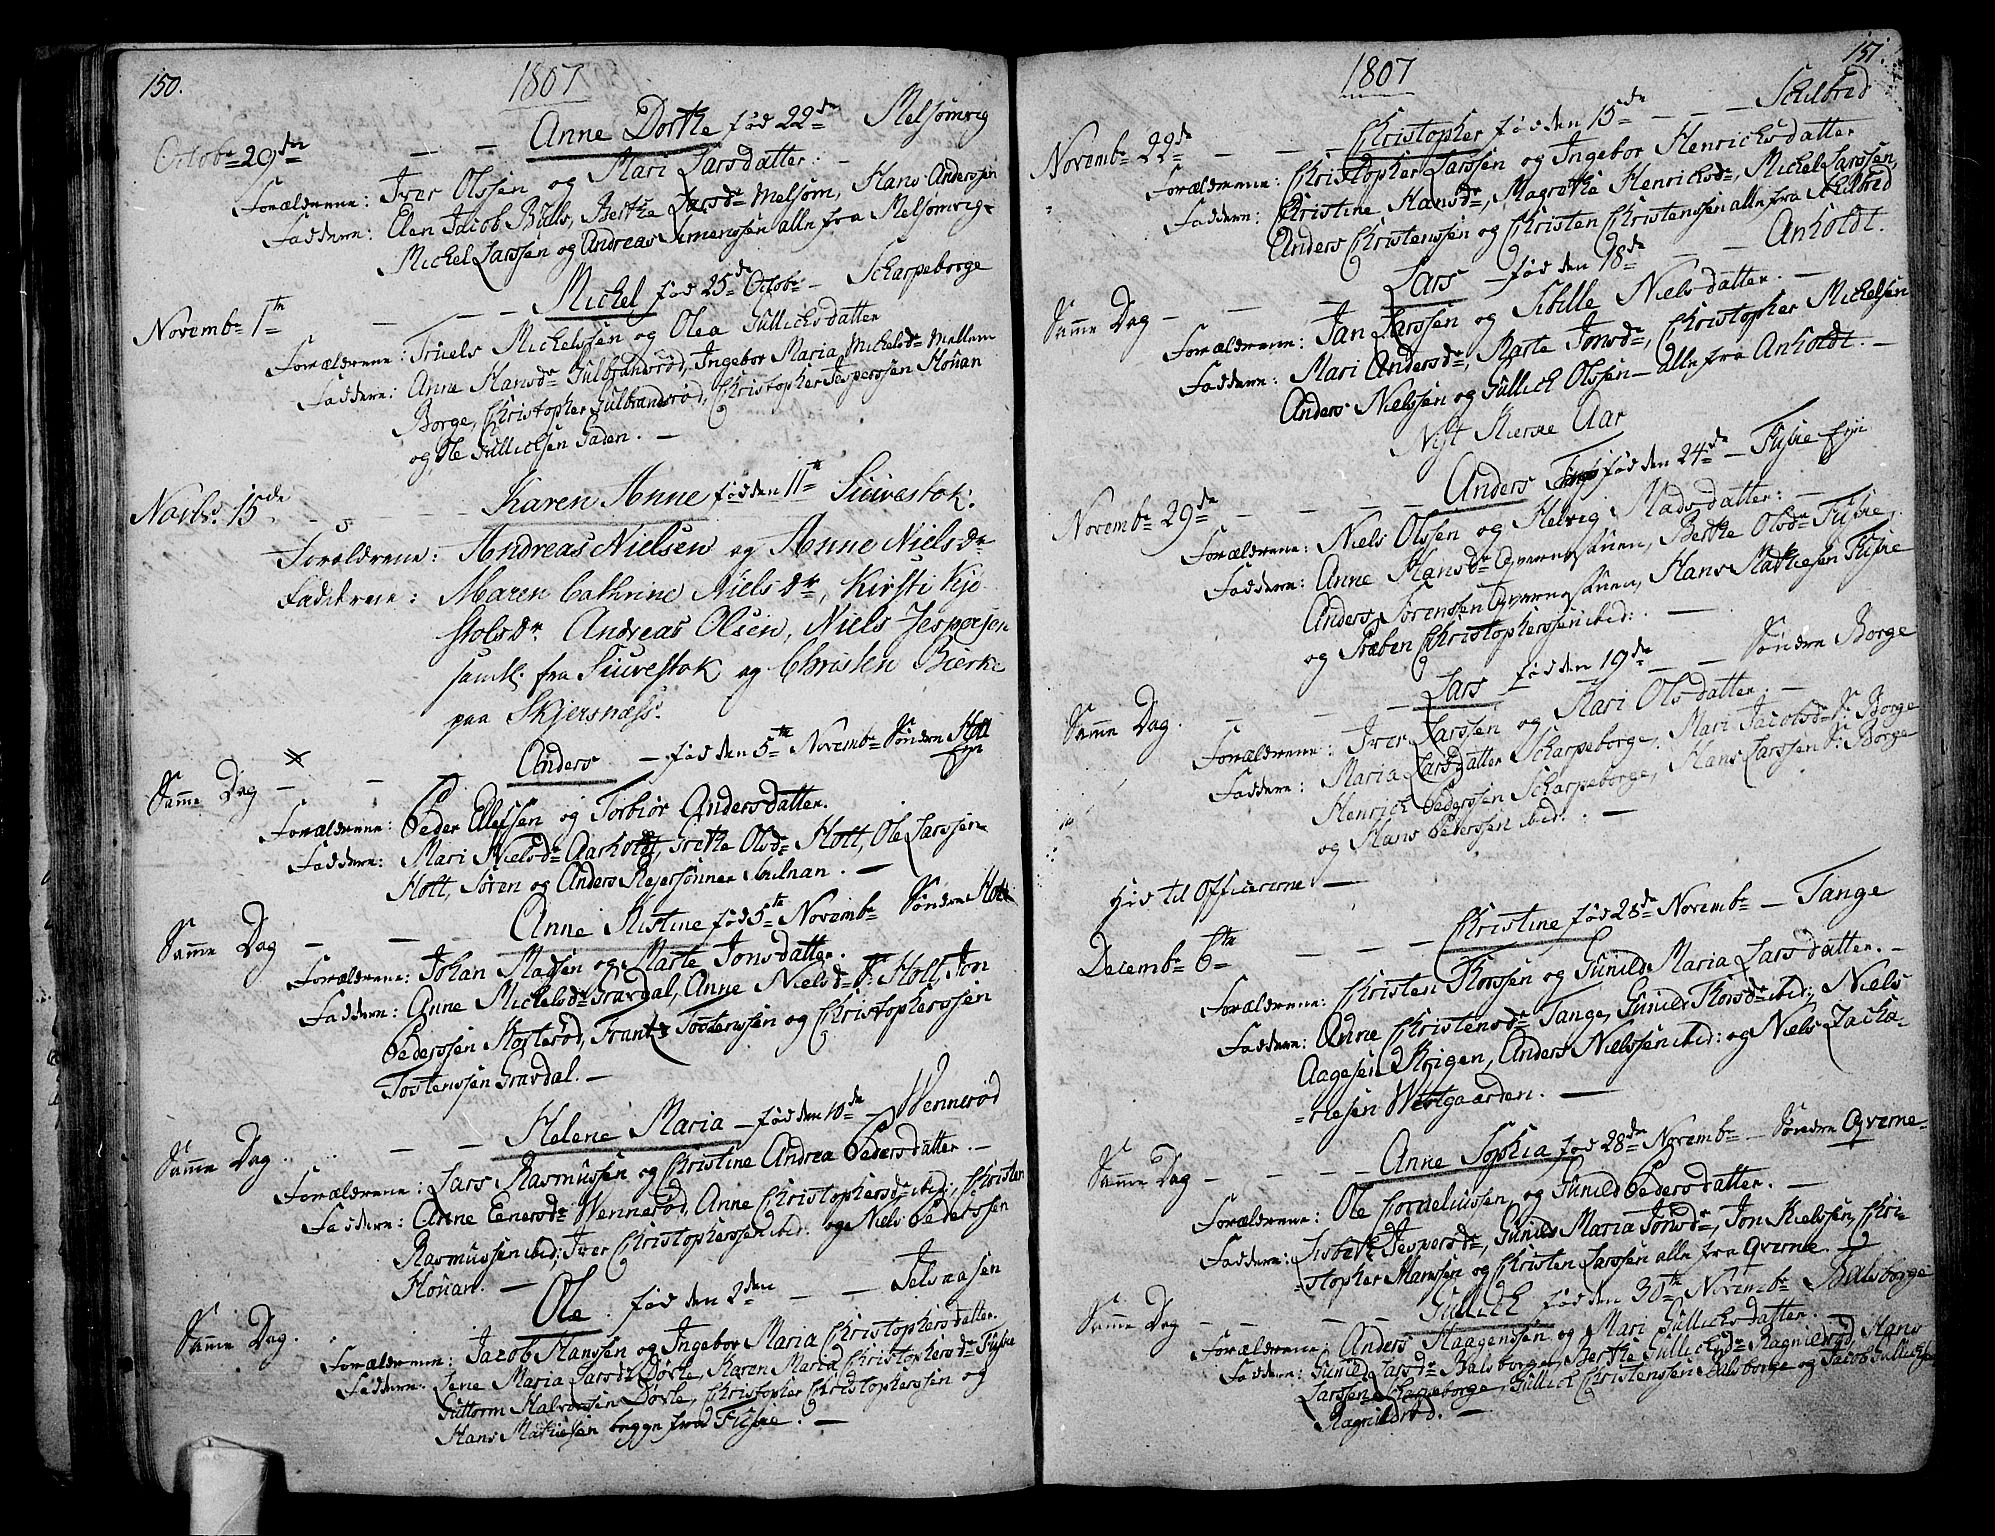 150.
1807
Octob: 29de — — Anne Dorthe fød 22de Melsomvig
Forældrene: Iver Olssen og Mari Larsdatter. —
Fadderne: Elen Jacob Bulls, Berthe Larsdr Melsom, Hans Anderssen
Michel Larssen og Andreas Simenssen alle fra Melsomvig
Novemb: 1te — — Michel fød 25de Octob: — Scharpeborge
Forældrene: Truels Michelssen og Olea Gullichsdatter
Fadderne: Anne Hansdr Gulbrandsrød, Ingebor Maria Michelsdr Mellem
Borge, Christopher Gulbrandsrød, Christopher Jesperssen Houan
og Ole Gullichsen Gaden. —
Novbr. 15de — — Karen Anne fød den 11te Tuuvestok:
Forældrene: Andreas Nielsen og Anne Nielsdr
Fadderene: Maren Cathrine Nielsdr, Kirsti Kje
stolsdr Andreas Olsen, Niels Jespersen
samtl. fra Tuuvestok og Christen Bierke
paa Skjersnæss.
Samme Dag — — Anders — fød den 5te Novemb: Søndre Holt
Eje
Forældrene: Peder Ellefsen og Torbiør Andersdatter.
Fadderne: Mari Nielsdr Aarholdt, Grethe Olsdr Holt, Ole Larssen
Holt, Søren og Anders Rejersønner Solnan. —
Samme Dag — — Anne Kistine fød 5te Novemb: Søndre Holt
Forældrene: Johan Madsen og Marte Jonsdatter.
Fadderne: Anne Michelsdr Gravdal, Anne Nielsdr S: Holt, Jon
Pederssen Korterød, Frantz Tostenssen og Christopherssen
Tostenssen Gravdal. —
Samme Dag. — — Helene Maria — fød den 10de — Wennerød
Forældrene: Lars Rasmussen og Christine Andrea Pedersdatter. —
Fadderne: Anne Enersdr Wennerød, Anne Christophersdr ibid: Christen
Rasmussen ibid: Iver Christopherssen ibid: og Niels Pederssen
Houan. —
Samme Dag. Ole. fød den 2den — — Jelsaasen
Forældrene: Jacob Hanssen og Ingebor Maria Christophersdatter.
Fadderne: Lene Maria Larsdr Dørke, Karen Maria Christophersdr Fuske
Guttorm Halvorsen Dørke, Christopher Christopherssen og
Hans Mathiesen begge fra Fuske. —
151.
1807
Novemb: 22de — — Christopher fød den 15de — — Schilbred
Forældrene: Christopher Larssen og Ingebor Henrichsdatter
Fadderne: Christine Hansdr, Magrethe Henrichsdr, Michel Larssen,
Anders Christenssen og Christen Christenssen alle fra Skilbred
Samme Dag — — Lars — fød den 18de — — Anholdt.
Forældrene: Jan Larssen og Sibille Nielsdatter. —
Fadderne: Mari Andersdr, Marte Jonsdr, Christopher Michelsen
Anders Nielssen og Gullich Olssen — alle fra Anholdt. —
Nyt Kierke Aar
Novemb: 29de — — Anders fød den 24de — Fuske Eje
Forældrene: Niels Olssen og Helvig Madsdatter: —
Fadderne: Anne Hansdr Qverneshuen, Berthe Olsdr Fuske,
Anders Sørenssen Qverneshuen, Hans Mathiesen Fuske
og Preben Christopherssen ibid: —
Samme Dag. — — Lars fød den 19de — — Søndre Borge
Forældrene: Iver Larssen og Kari Olsdatter: —
Fadderne: Maria Larsdatter Scharpeborge, Mari Jacobsdr S: Borge
Henrich Pederssen Scharpeborge, Hans Larssen S: Borge
og Hans Pederssen ibid. —
Hid til Officierene —
Decemb: 6te — — Christine fød 28de Novemb: — Tange
Forældrene: Christen Thorssen og Gunild Maria Larsdatter. —
Fadderne: Anne Christensdr Tange, Gunild Thorsdr ibid:, Niels
Aagesen Krigen, Anders Nielssen ibid: og Niels Zacha-
-riesen Westgaarden. —
Samme Dag — — Anne Sophia fød 28de Novemb: — Søndre Qverne
Forældrene: Ole Cordeliussen, og Gunild Pedersdatter. —
Fadderne: Lisbeth Jespersdr, Gunild Maria Jonsdr, Jon Nielssen, Chri-
-stopher Mamssen og Christen Larssen alle fra Qverne. —
Samme Dag — — Gullich fød den 30te Novemb: Balsborge
Forældrene: Anders Haagenssen og Mari Gullichsdatter. —
Fadderne: Gunild Larsdr Balsborge, Berthe Gullichsdr Ragnildrød, Hans
Larssen Scharpeborge, Gullich Christenssen Balsborge og Jacob Gullichsen
Ragnildrød. —